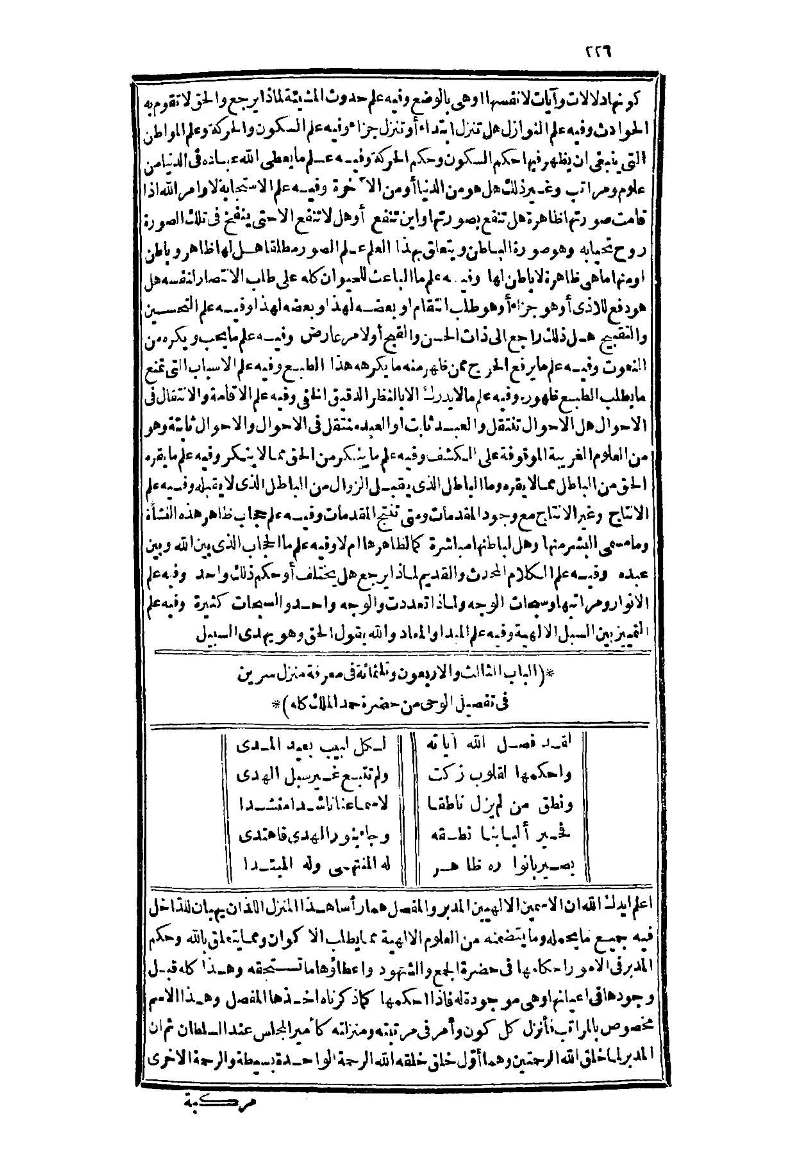 ٢٢٦
كونها دلالات وآيات لانفسها اوهي بالوضع وفيه علم حدوث المشيئة لماذا يرجع والحق لا تقوم به
الحوادث وفيه علم النوازل هل تنزل ابتداء أو تنزل جزاء وفيه علم السكون والحركة وعلم المواطن
التي ينبغي ان يظهر فيها حكم السكون وحكم الحركة وفيه علم ما يعطي الله عباده في الدنيا من
علوم ومراتب وغير ذلك هل هو من الدنيا أو من الآخرة وفيه علم الاستجابة لاوامر الله اذا
قامت صورتها ظاهرة هل تنفع بصورتها واين تنفع أو هل لا تنفع الا حتى ينفخ في تلك الصورة
روح تحيا به وهو صورة الباطن ويتعلق بهذا العلم علم الصور مطلقا هل لها ظاهر وباطن
او منها ما هي ظاهرة لا باطن لها وفيه علم ما الباعث للحيوان كله على طلب الانتصار لنفسه هل
هو دفع للاذى أو هو جزاء أو هو طلب انتقام او بعضه لهذا وبعضه لهذا وفيه علم التحسين
والتقبيح هل ذلك راجع الى ذات الحسن والقبح أو لامر عارض وفيه علم ما يحب ويكره من
النعوت وفيه علم ما يرفع الحرج ممن ظهر منه ما يكرهه هذا الطبع وفيه علم الاسباب التي تمنع
ما يطلب الطبع ظهوره وفيه علم ما لا يدرك الا بالنظر الدقيق الخفي وفيه علم الاقامة والانتقال في
الاحوال هل الاحوال تنتقل والعبد ثابت او العبد منتقل في الاحوال والاحوال ثابتة وهو
من العلوم الغريبة الموقوفة على الكشف وفيه علم ما ينكر من الحق مما لا ينكر وفيه علم ما يقره
الحق من الباطل مما لا يقره وما الباطل الذي يقبل الزوال من الباطل الذي لا يقبله وفيه علم
الانتاج وغير الانتاج مع وجود المقدمات ومتى تنتج المقدمات وفيه علم حجاب ظاهر هذه النشأة
وما مسمى البشر منها وهل لباطنها مباشرة كما لظاهرها ام لا وفيه علم ما الحجاب الذي بين الله وبين
عبده وفيه علم الكلام المحدث والقديم لماذا يرجع هل يختلف أو حكم ذلك واحد وفيه علم
الانوار ومراتبها وسبحات الوجه ولماذا تعددت والوجه واحد والسبحات كثيرة وفيه علم
التمييز بين السبل الالهية وفيه علم المبدا والمعاد والله يقول الحق وهو يهدي السبيل
*(الباب الثالث والاربعون وثلثمائة في معرفة منزل سرين
في تفصيل الوحي من حضرة حمد الملك كله)*
لقد فصل الله آياته لكل لبيب بعيد المدى
واحكمها لقلوب زكت ولم تتبع غير سبل الهدى
ونطق من لم يزل ناطقا لاسماعنا ناشدا منشدا
فحير ألبابنا نطقه وجاء بنور الهدى فاهتدى
بصير بانواره ظاهر له المنتهى وله المبتدا
اعلم ايدك الله ان الاسمين الالهيين المدبر والمفصل هما رأسا هذا المنزل اللذان يهبان للداخل
فيه جميع ما يحمله وما يتضمنه من العلوم الالهية مما يطلب الاكوان ومما يتعلق بالله وحكم
المدبر في الامور احكامها في حضرة الجمع والشهود واعطاؤها ما تستحقه وهذا كله قبل
وجودها في اعيانها وهي موجودة له فاذا احكمها كما ذكرناه اخذها المفصل وهذا الاسم
مخصوص بالمراتب فأنزل كل كون وأمر في مرتبته ومنزلته كأمير المجلس عند السلطان ثم ان
المدبر لما خلق الله الرحمتين وهما أول خلق خلقه الله الرحمة الواحدة بسيطة والرحمة الاخرى
مركبة